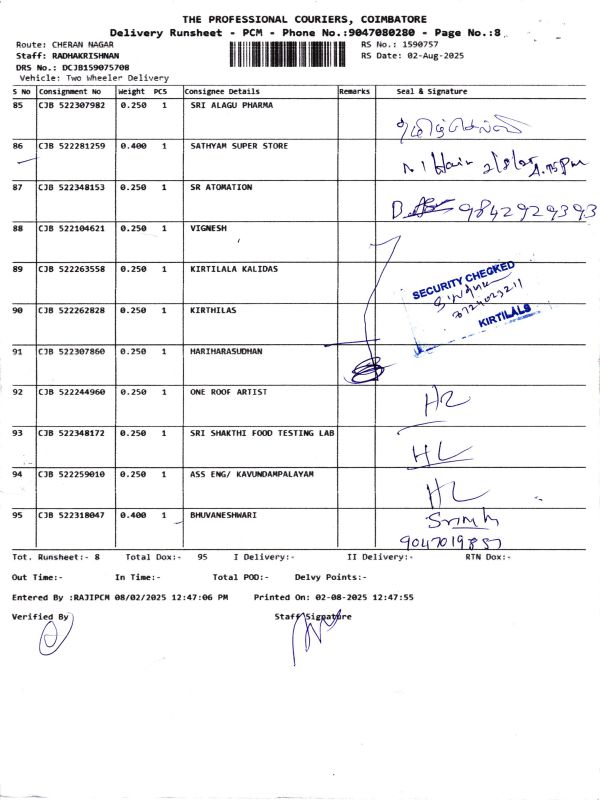 THE PROFESSIONAL COURIERS, COIMBATORE
Delivery Runsheet - PCM - Phone No.:9047080280 - Page No.:8
Route: CHERAN NAGAR RS No.: 1590757
Staff: RADHAKRISHNAN RS Date: 02-Aug-2025
DRS No.: DCJB159075708
Vehicle: Two Wheeler Delivery
S No Consignment No Weight PCS Consignee Details Remarks Seal & Signature
85 CJB 522307982 0.250 1 SRI ALAGU PHARMA
86 CJB 522281259 0.400 1 SATHYAM SUPER STORE
2/8/25 4.45pm
87 CJB 522348153 0.250 1 SR ATOMATION
9842929393
88 CJB 522104621 0.250 1 VIGNESH
89 CJB 522263558 0.250 1 KIRTILALA KALIDAS
SECURITY CHECKED
90 CJB 522262828 0.250 1 KIRTHILAS
KIRTILALS
91 CJB 522307860 0.250 1 HARIHARASUDHAN
92 CJB 522244960 0.250 1 ONE ROOF ARTIST
93 CJB 522348172 0.250 1 SRI SHAKTHI FOOD TESTING LAB
94 CJB 522259010 0.250 1 ASS ENG/ KAVUNDAMPALAYAM
95 CJB 522318047 0.400 1 BHUVANESHWARI
9047019857
Tot. Runsheet:- 8 Total Dox:- 95 I Delivery:- II Delivery:- RTN Dox:-
Out Time:- In Time:- Total POD:- Delvy Points:-
Entered By :RAJIPCM 08/02/2025 12:47:06 PM Printed On: 02-08-2025 12:47:55
Verified By Staff Signature